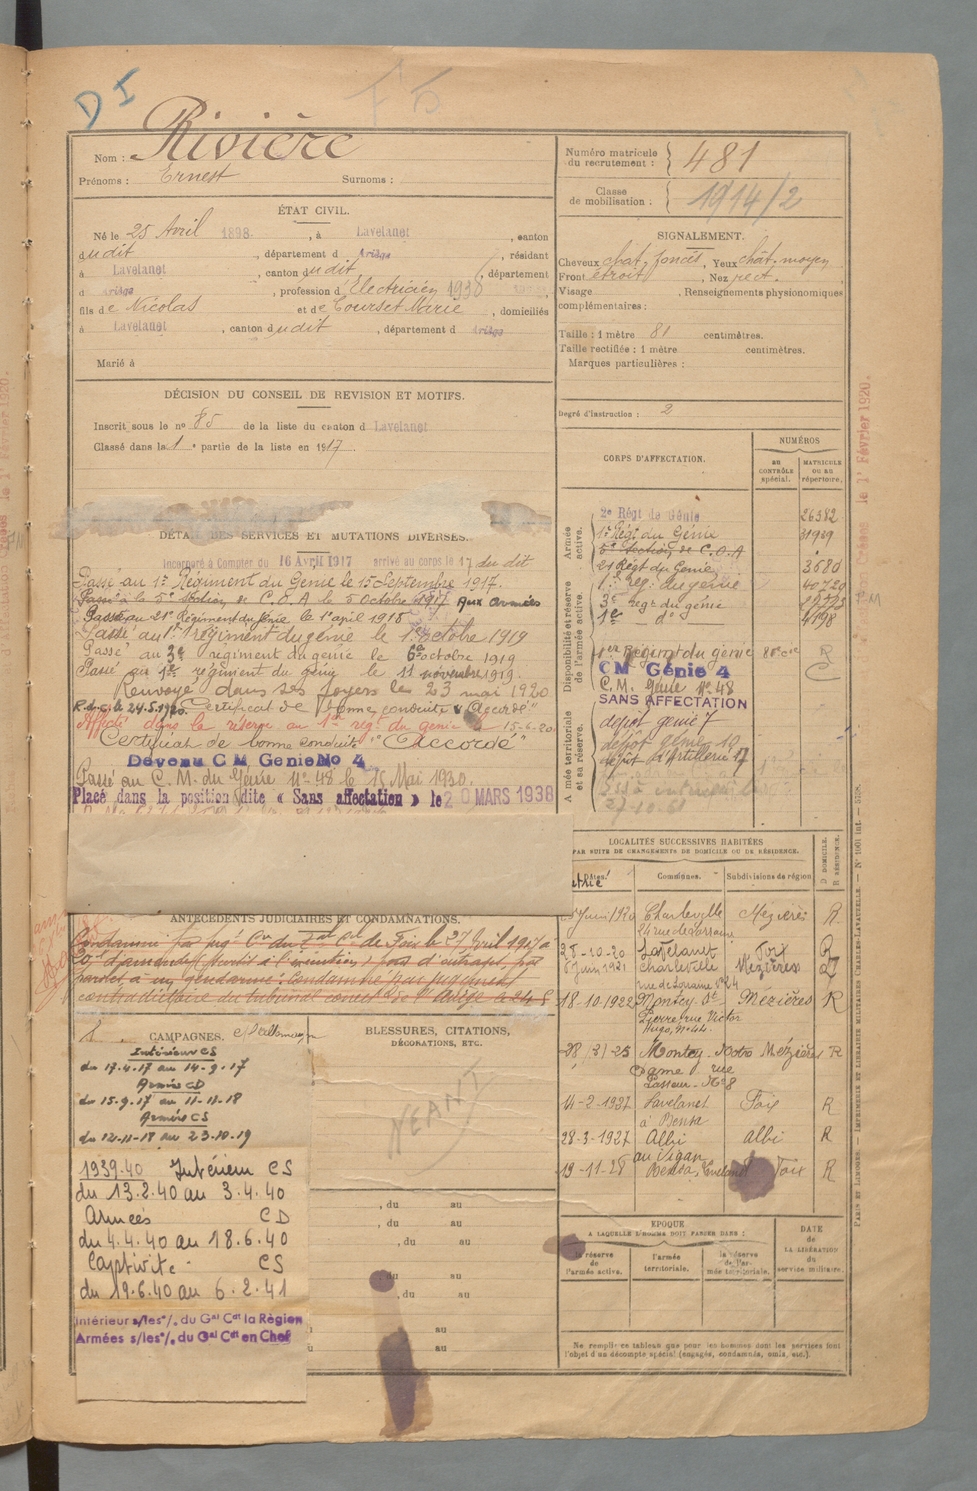 D I
Rivière
Nom :
Prénoms : Ernest Surnoms :
Numéro matricule du recrutement : 481
Classe de mobilisation : 1914/2
ÉTAT CIVIL.
Né le 25 Avril 1898, à Lavelanet, canton
dudit, département d Ariège, résidant
à Lavelanet, canton dudit, département
d Ariège, profession d'Electricien 1930
fils de Nicolas et de Tourset Marie, domiciliés
à Lavelanet, canton dudit, département d Ariège
Marié à
SIGNALEMENT.
Cheveux chât. foncés, Yeux chât. moyen
Front étroit, Nez rect.
Visage , Renseignements physionomiques
complémentaires :
Taille : 1 mètre 81 centimètres.
Taille rectifiée : 1 mètre centimètres.
Marques particulières :
Degré d'instruction : 2
DÉCISION DU CONSEIL DE REVISION ET MOTIFS.
Inscrit sous le no 85 de la liste du canton d Lavelanet
Classé dans la 1e partie de la liste en 1917.
DÉTAIL DES SERVICES ET MUTATIONS DIVERSES.
Incorporé à Compter du 16 Avril 1917 arrivé au corps le 17 du dit
Passé au 1er Régiment du Génie le 15 Septembre 1917.
Passé à la 5e Section de C.O.A le 5 Octobre 1917 Aux armées
Passé au 21e Régiment du génie le 1er april 1918
Passé au 1er régiment du génie le 1er octobre 1919
Passé au 3e régiment du génie le 6 octobre 1919
Passé au 1er régiment du génie le 11 novembre 1919.
Renvoyé dans ses foyers le 23 mai 1920
R.d.C. le 24.5.1920. Certificat de bonne conduite "Accordé"
Affecté dans la réserve au 1er régt du génie le 15-6-20
Certificat de bonne conduite "Accordé"
Devenu C M Genie No 4
Passé au C. M. du Génie No 48 le 15 Mai 1930.
Placé dans la position dite « Sans affectation » le 20 MARS 1938
CORPS D'AFFECTATION.
NUMÉROS
AU CONTRÔLE spécial.
MATRICULE OU AU répertoire.
Armée active.
Disponibilité et réserve de l'armée active.
Armée territoriale et sa réserve.
2e Régt de Génie 26382
1er Régt du Génie 31939
5e Section de C.O.A
21 Régt du Génie 3680
1er rég. du génie 40720
3e régt du génie
1er do
1er Régiment du génie R
CM Génie 4 C
C.M. Génie No 48
SANS AFFECTATION
dépôt génie 7
dépôt génie 19
dépôt d'Artillerie 17
27-10-51
LOCALITÉS SUCCESSIVES HABITÉES
PAR SUITE DE CHANGEMENTS DE DOMICILE OU DE RÉSIDENCE.
Dates. Communes. Subdivisions de région
D DOMICILE. R RÉSIDENCE.
Juin 1920 Charleville Mézières R
24 rue de Lorraine
28-10-20 Lavelanet Foix R
6 juin 1921 Charleville Mézières R
rue de Lorraine No 24
18-10-1922 Montcy St Mézières R
Pierre, rue Victor
Hugo, No 44.
Montcy-Notre Mézières R
Dame rue
14-2-1927 Lavelanet Foix R
à Bensa
28-3-1927 Albi albi R
au Vigan
19-11-28 Bensa, Lavelanet Foix R
ANTÉCÉDENTS JUDICIAIRES ET CONDAMNATIONS.
Condamné par de Foix le 27 Avril 1917 à
d'amende pour d'outrage, par
parole, à un gendarme. Condamné par jugement
contradictoire du tribunal correct. de
CAMPAGNES. C/ Allemagne
Intérieur CS
du 17.4.17 au 14.9.17
Armée CD
du 15.9.17 au 11-11-18
Armée CS
du 12-11-18 au 23-10-19
1939.40 Intérieur CS
du 13.2.40 au 3.4.40
Armées CD
du 4.4.40 au 18.6.40
Captivité CS
du 19.6.40 au 6.2.41
Intérieur s/les°/. du Gal Cdt la Région
Armées s/les°/. du Gal Cdt en Chef
BLESSURES, CITATIONS,
DÉCORATIONS, ETC.
NEANT
, du au
, du au
, du au
du au
, du au
au
au
EPOQUE
A LAQUELLE L'HOMME DOIT PASSER DANS :
la réserve de l'armée active.
l'armée territoriale.
la réserve de l'armée territoriale.
DATE de LA LIBÉRATION du service militaire.
Ne remplir ce tableau que pour les hommes dont les services font
l'objet d'un décompte spécial (engagés, condamnés, omis, etc.).
PARIS ET LIMOGES. — IMPRIMERIE ET LIBRAIRIE MILITAIRES CHARLES-LAVAUZELLE. — No 1001 int. — 5708.
le 1er Février 1920.